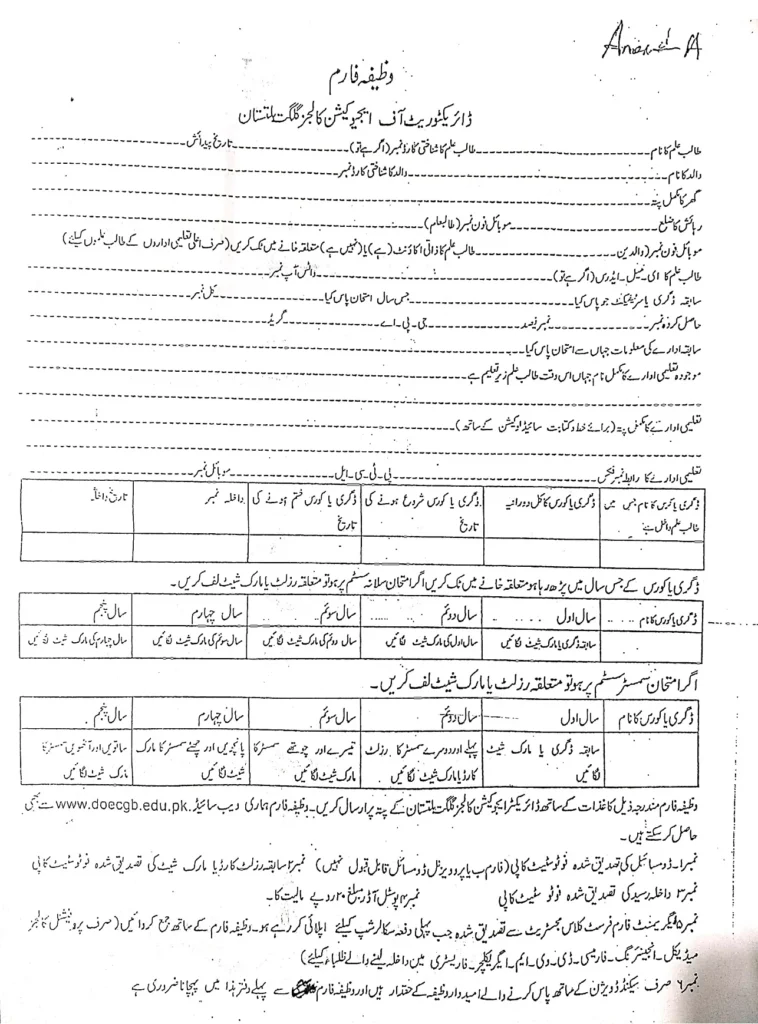 وظیفہ فارم
ڈائریکٹوریٹ آف ایجوکیشن کالجز گلگت بلتستان
طالب علم کا نام ---------- طالب علم کا شناختی کارڈ نمبر (اگر ہے تو) ---------- تاریخ پیدائش ----------
والد کا نام ---------- والد کا شناختی کارڈ نمبر ----------
گھر کا مکمل پتہ ----------
رہائش کا ضلع ---------- موبائل فون نمبر (طالبعلم) ----------
موبائل فون نمبر (والدین) ---------- طالب علم کا ذاتی اکاؤنٹ (ہے) یا (نہیں ہے) متعلقہ خانے میں ٹک کریں (صرف اعلیٰ تعلیمی اداروں کے طالب علموں کیلئے)
طالب علم کا ای میل ایڈرس (اگر ہے تو) ---------- واٹس آپ نمبر ----------
سابقہ ڈگری یا سرٹیفکیٹ جو پاس کیا ---------- جس سال امتحان پاس کیا ---------- کل نمبر ----------
حاصل کردہ نمبر ---------- نمبر فیصد ---------- جی پی اے ---------- گریڈ ----------
سابقہ ادارے کی معلومات جہاں سے امتحان پاس کیا ----------
موجودہ تعلیمی ادارے کا مکمل نام جہاں اس وقت طالب علم زیر تعلیم ہے ----------
تعلیمی ادارے کا مکمل پتہ (برائے خط و کتابت سائیڈ لوکیشن کے ساتھ) ----------
تعلیمی ادارے کا رابطہ نمبر فیکس ---------- پی ٹی سی ایل ---------- موبائل نمبر ----------
ڈگری یا کورس کا نام جس میں طالب علم داخل ہے | ڈگری یا کورس کا کل دورانیہ | ڈگری یا کورس شروع ہونے کی تاریخ | ڈگری یا کورس ختم ہونے کی تاریخ | داخلہ نمبر | تاریخ داخلہ
ڈگری یا کورس کے جس سال میں پڑھ رہا ہو متعلقہ خانے میں ٹک کریں اگر امتحان سالانہ سسٹم پر ہو تو متعلقہ رزلٹ یا مارک شیٹ لف کریں۔
ڈگری یا کورس کا نام | سال اول | سال دوئم | سال سوئم | سال چہارم | سال پنجم
سابقہ ڈگری یا مارک شیٹ لگائیں | سال اول کی مارک شیٹ لگائیں | سال دوئم کی مارک شیٹ لگائیں | سال سوئم کی مارک شیٹ لگائیں | سال چہارم کی مارک شیٹ لگائیں
اگر امتحان سمسٹر سسٹم پر ہو تو متعلقہ رزلٹ یا مارک شیٹ لف کریں۔
ڈگری یا کورس کا نام | سال اول | سال دوئم | سال سوئم | سال چہارم | سال پنجم
سابقہ ڈگری یا مارک شیٹ لگائیں | پہلے اور دوسرے سمسٹر کا رزلٹ کارڈ یا مارک شیٹ لگائیں | تیسرے اور چوتھے سمسٹر کا مارک شیٹ لگائیں | پانچویں اور چھٹے سمسٹر کا مارک شیٹ لگائیں | ساتویں اور آٹھویں سمسٹر کا مارک شیٹ لگائیں
وظیفہ فارم مندرجہ ذیل کاغذات کے ساتھ ڈائریکٹر ایجوکیشن کالجز گلگت بلتستان کے پتہ پر ارسال کریں۔ وظیفہ فارم ہماری ویب سائیڈ www.doecgb.edu.pk سے بھی
حاصل کر سکتے ہیں۔
نمبر۱۔ ڈومسائل کی تصدیق شدہ فوٹو سٹیٹ کاپی (فارم ب یا پرویژنل ڈومسائل قابل قبول نہیں) نمبر۲ سابقہ رزلٹ کارڈ یا مارک شیٹ کی تصدیق شدہ فوٹو سٹیٹ کاپی
نمبر۳ داخلہ رسید کی تصدیق شدہ فوٹو سٹیٹ کاپی نمبر۴ پوسٹل آڈر مبلغ ۲۰ روپے مالیت کا۔
نمبر۵ ایگریمنٹ فارم فرسٹ کلاس مجسٹریٹ سے تصدیق شدہ جب پہلی دفعہ سکالرشپ کیلئے اپلائی کر رہے ہو۔ وظیفہ فارم کے ساتھ جمع کروائیں (صرف پروفیشنل کالجز
میڈیکل۔ انجینئرنگ۔ فارمیسی۔ ڈی۔ وی۔ ایم۔ ایگریکلچر۔ فاریسٹری میں داخلہ لینے والے طلباء کیلئے)
نمبر۶ صرف سیکنڈ ڈویژن کے ساتھ پاس کرنے والے امیدوار وظیفہ کے حقدار ہیں اور وظیفہ فارم سے پہلے دفتر ہذا میں پہچانا ضروری ہے